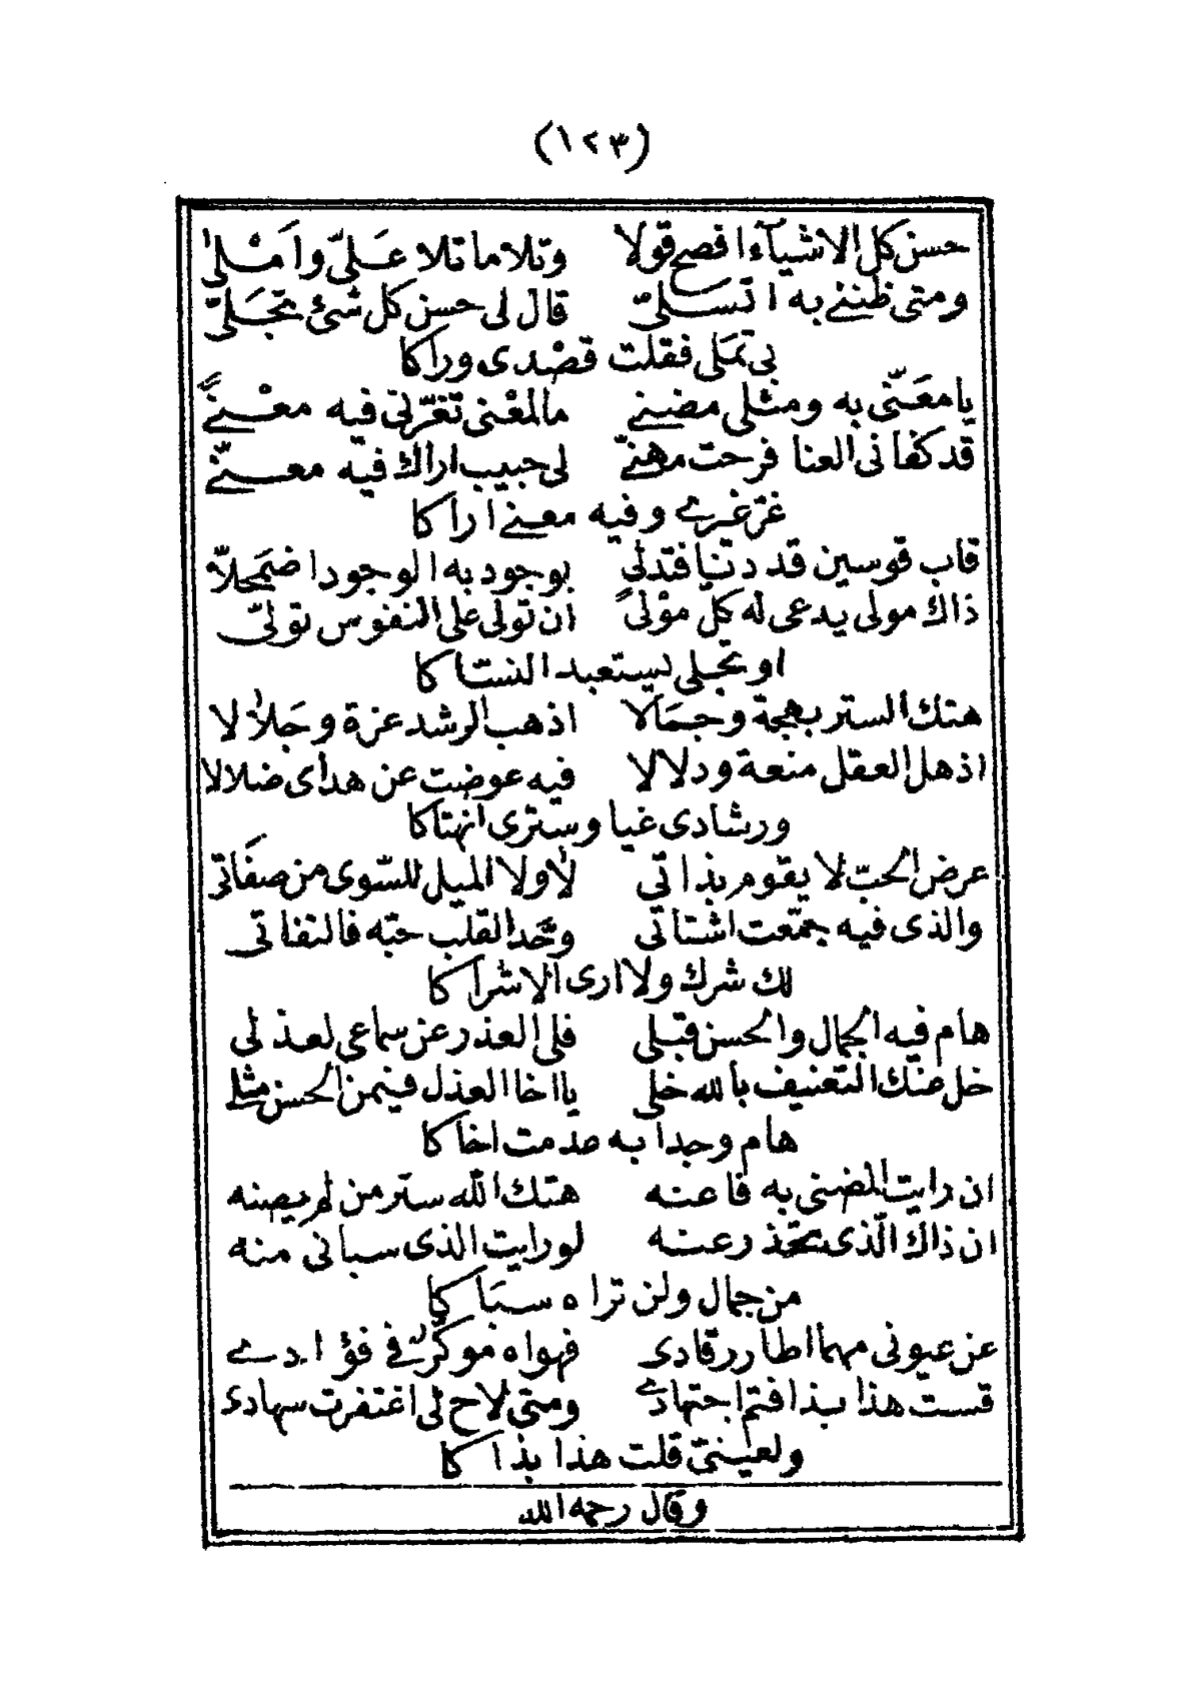 (١٢٣)
حسن كل الاشياء افصح قولا وتلا ما تلا عَلىّ واَمْلىٰ
ومتى ظننے به اتسلىّ قال لى حسن كل شئ تجَلىّ
بى تمَلى فقلت قصْدى وراكا
يا معَنّى به ومثلى مضنے ما المعْنى تغرّنى فيه معْنےً
قد كفانى العنا فرحت مهنےّ لى حبيب اراك فيه معنےّ
غرّ غيرے وفيه معنے اراكا
قاب قوسين قد دنا فتدلىٰ بوجود به الوجود اضمَحلاّ
ذاك مولى يدعى له كلّ موْلىً ان تولى على النفوس تولىّ
او تجلى يستعبد النساكا
هتك الستر بهجة وجمَالا اذهب الرشد عزة وجَلالا
اذهل العقل منعة ودلالا فيه عوضت عن هداى ضلالا
ورشادى غيا وسترى انهتاكا
عرض الحبّ لا يقوم بذاتى لا ولا الميل للسّوى من صفَاتى
والذى فيه جمّعت اشتاتى وحَّد القلب حبّه فالتفاتى
لك شرك ولا ارى الاشراكا
هام فيه الجمال والحسن قبلى فلى العذر عن سماعى لعذلى
خل عنك التعنيف بالله خلى يا اخا العذل فيمن الحسن مثلے
هام وجدا به عدمت اخاكا
ان رايت المضنى به فاعنه هتك الله ستر من لم يصنه
ان ذاك الّذى تحّذرعنه لو رايت الذى سبانى منه
من جمال ولن تراه سبَاكا
عن عيونى مهما اطار رقادى فهواه موكّر فے فؤادے
قست هذا بذا فتم اجتهادے ومتى لاح لى اغتفرت سهادى
ولعينىّ قلت هذا بذاكا
وقال رحمه الله